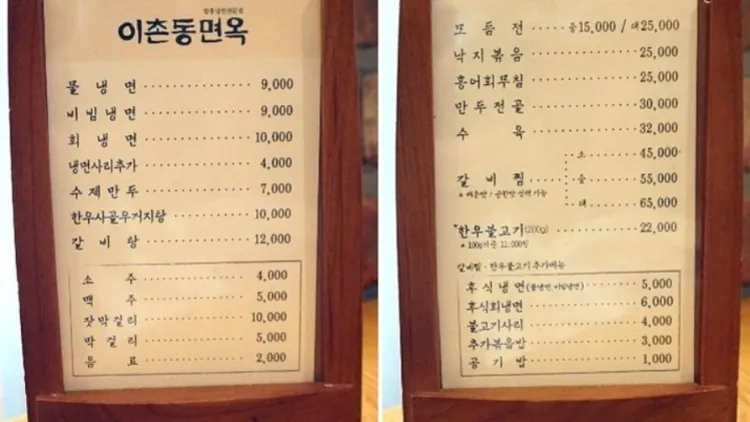 함흥냉면전문점
이촌동면옥
물냉면 9,000
비빔냉면 9,000
회냉면 10,000
냉면사리추가 4,000
수제만두 7,000
한우사골우거지탕 10,000
갈비탕 12,000
소주 4,000
맥주 5,000
잣막걸리 10,000
막걸리 5,000
음료 2,000
모듬전 중15,000 / 대25,000
낙지볶음 25,000
홍어회무침 25,000
만두전골 30,000
수육 32,000
소 45,000
갈비찜 중 55,000
* 매운맛 / 순한맛 선택 가능
대 65,000
*한우불고기(200g) 22,000
* 100g가준 11,000원
갈비찜 · 한우불고기 추가메뉴
후식냉면(물냉면, 비빔냉면) 5,000
후식회냉면 6,000
불고기사리 4,000
추가볶음밥 3,000
공기밥 1,000